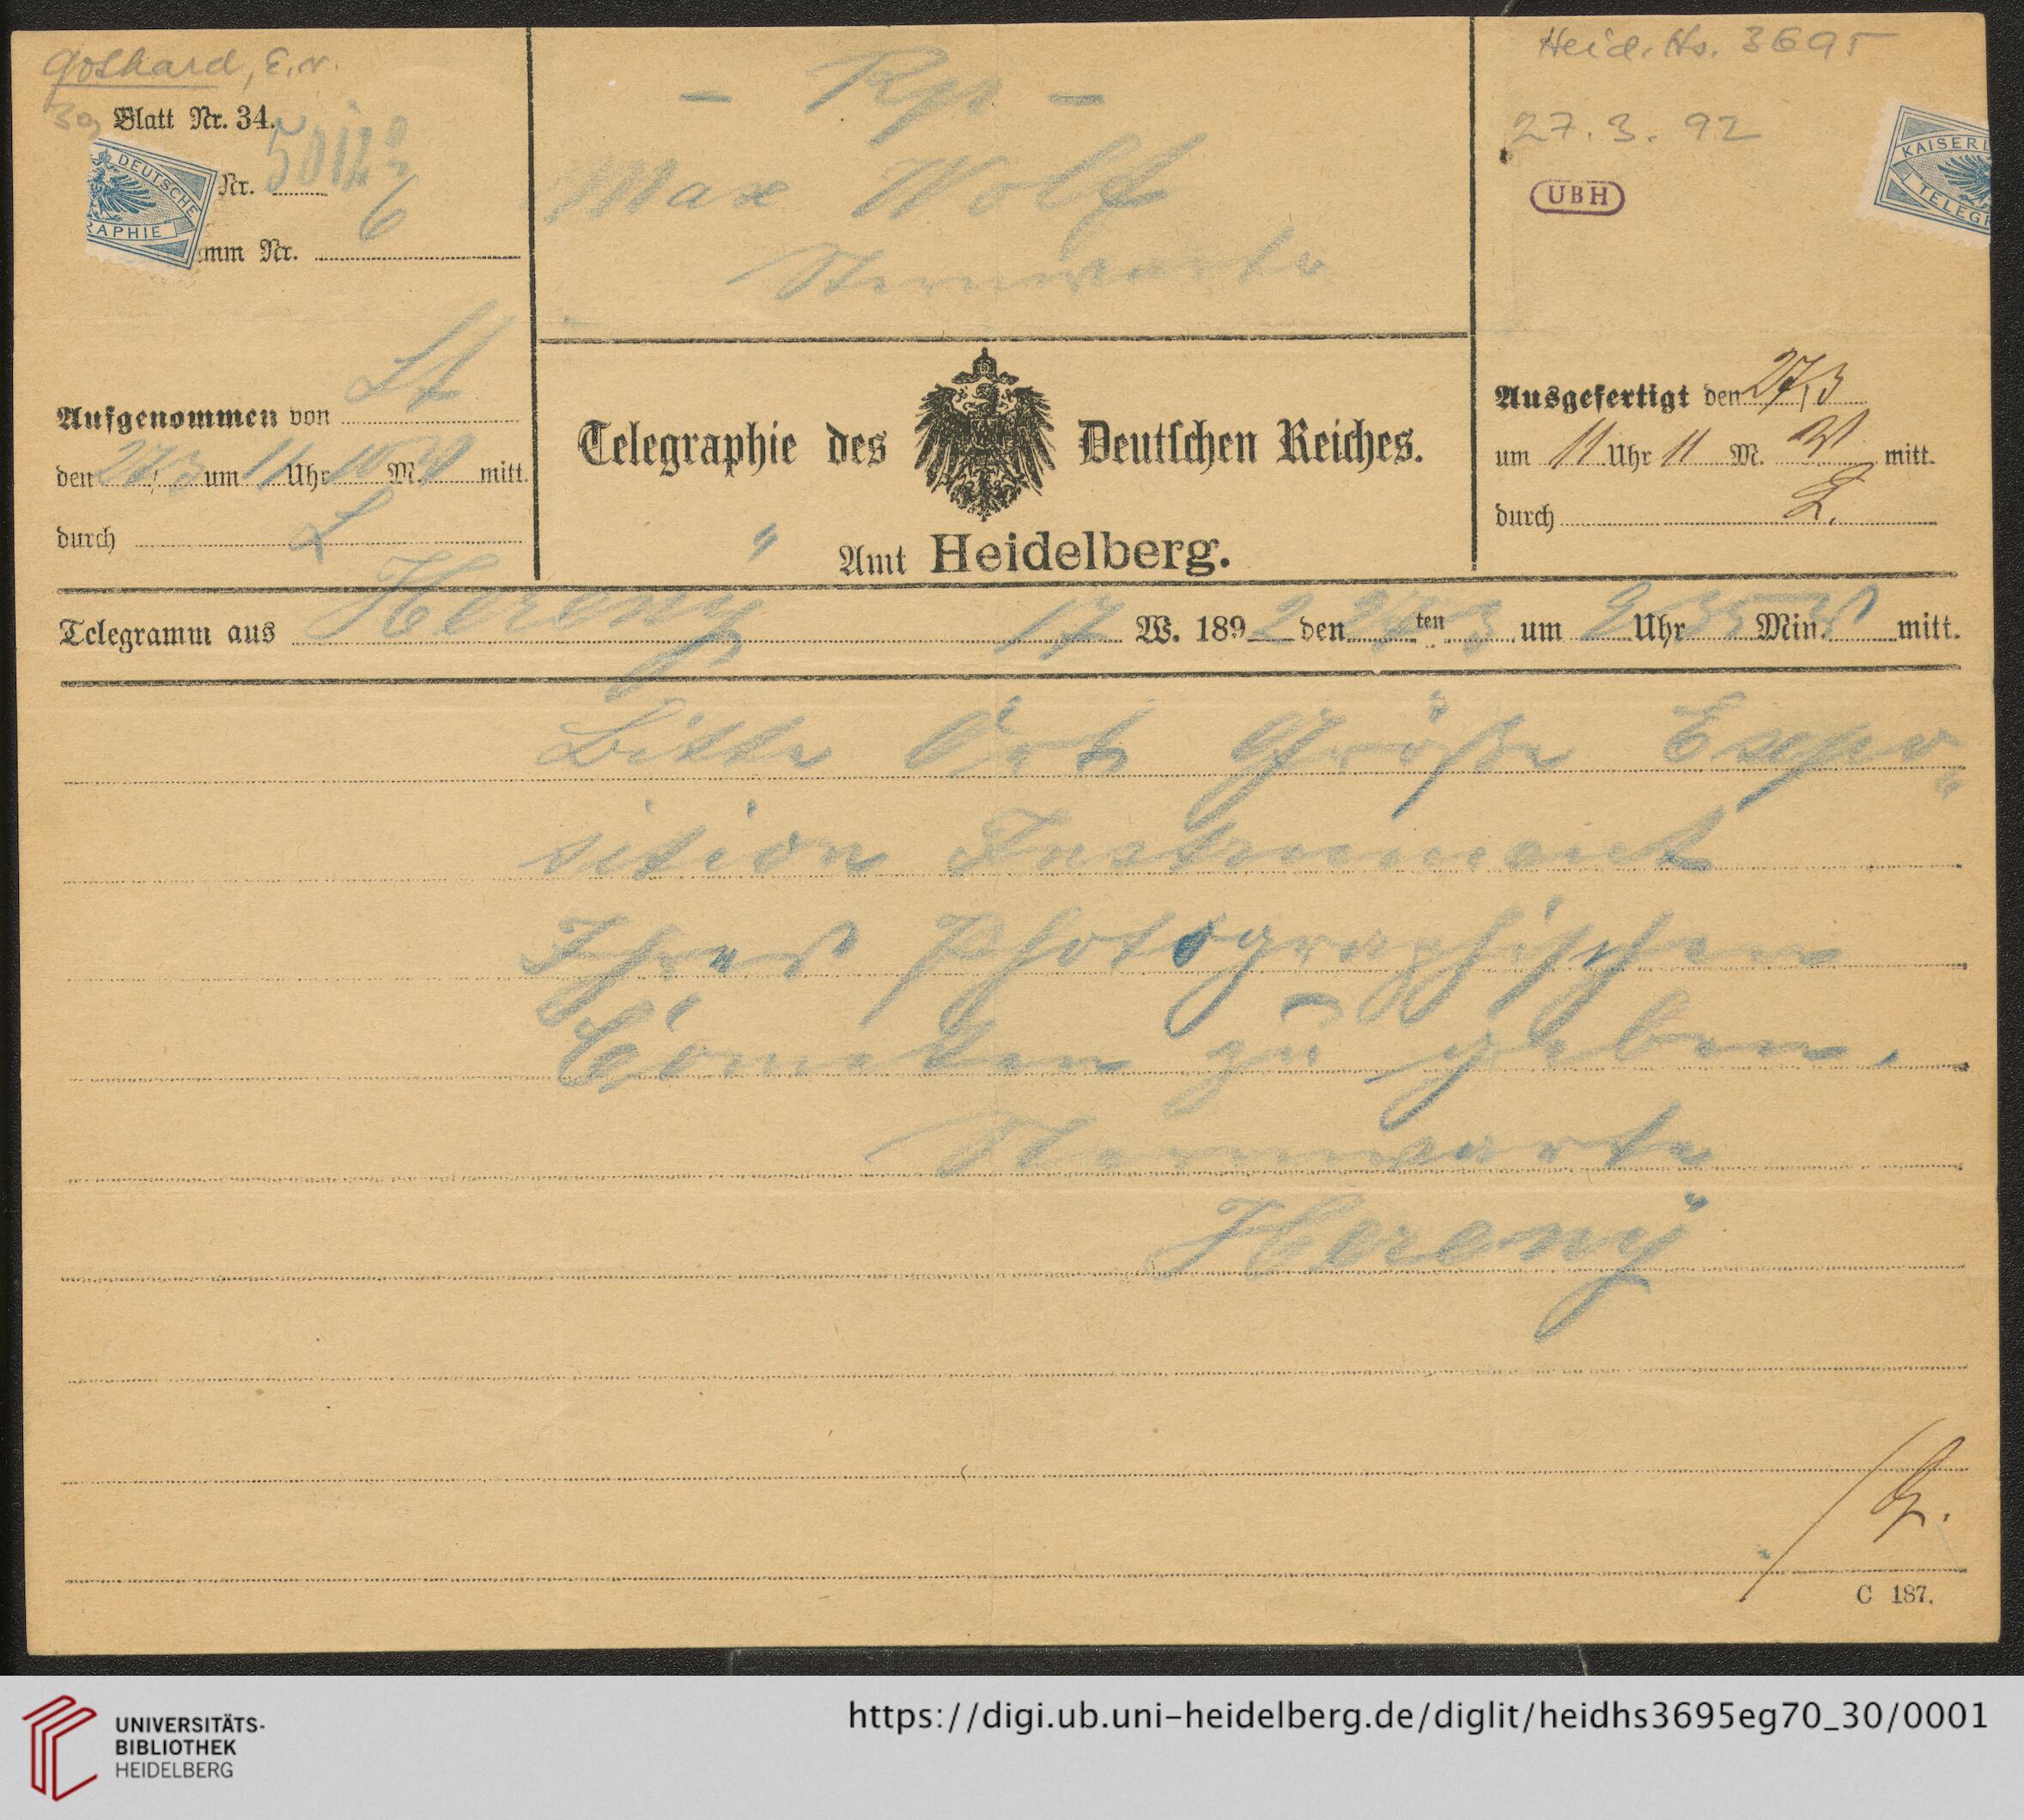 Gothard, E. v.
30
Blatt Nr. 34.
Nr.
amm Nr. 6
DEUTSCHE
RAPHIE
– Rp –
Max Wolf
Sternwarte
Heid. Hs. 3695
27.3.92
UBH
KAISERL
TELEGR
Aufgenommen von Lt
den 27/3 um 11 Uhr 10 M. V mitt.
durch L
Telegraphie des Deutschen Reiches.
Amt Heidelberg.
Ausgefertigt den 27/3
um 11 Uhr 11 M. V mitt.
durch L.
Telegramm aus Hereny 17 W. 1892 den 27ten 3 um 9 Uhr 35 Min. V mitt.
Bitte Ort Größe Expo„
sition Instrument
Ihres Photographischen
Cometen zu geben.
Sternwarte
Hereny
C 187.
UNIVERSITÄTS-
BIBLIOTHEK
HEIDELBERG
https://digi.ub.uni-heidelberg.de/diglit/heidhs3695eg70_30/0001